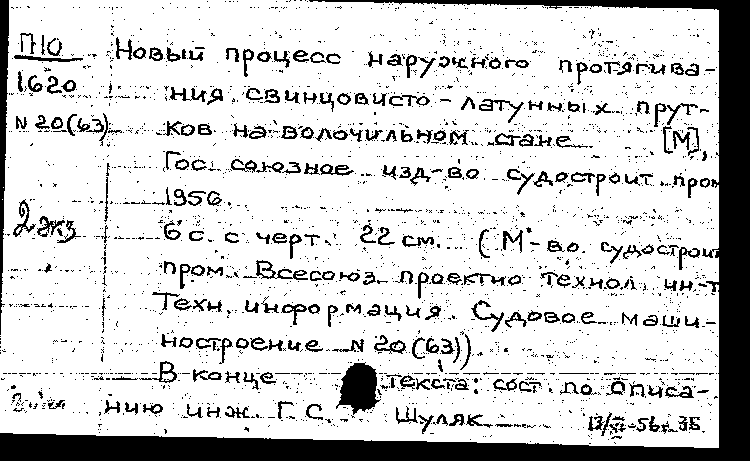 П10
1620
N 20(63)
2 экз
Новый процесс наружного протягива-
ния свинцовисто-латунных прут-
ков на волочильном стане [М],
Гос. союзное изд-во судостроит. пром
1956.
6 с. с черт. 22 см. (М-во судостроит
пром. Всесоюз. проектно технол. ин-т
Техн. информация. Судовое маши-
ностроение N 20(63)).
В конце текста: сост. по описа-
нию инж. Г. С. Шуляк
13/XI-56г.